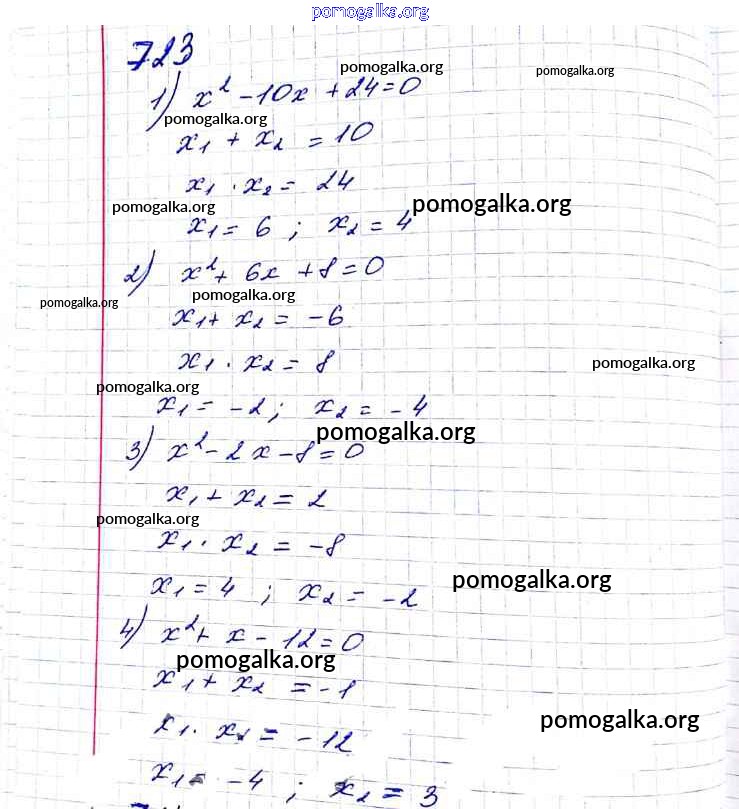 pomogalka.org
723
pomogalka.org
pomogalka.org
1) x² - 10x + 24 = 0
pomogalka.org
x₁ + x₂ = 10
x₁ · x₂ = 24
pomogalka.org
pomogalka.org
x₁ = 6 ; x₂ = 4
2) x² + 6x + 8 = 0
pomogalka.org
pomogalka.org
x₁ + x₂ = -6
x₁ · x₂ = 8
pomogalka.org
pomogalka.org
x₁ = -2 ; x₂ = -4
pomogalka.org
3) x² - 2x - 8 = 0
x₁ + x₂ = 2
pomogalka.org
x₁ · x₂ = -8
pomogalka.org
x₁ = 4 ; x₂ = -2
4) x² + x - 12 = 0
pomogalka.org
x₁ + x₂ = -1
pomogalka.org
x₁ · x₂ = -12
x₁ = -4 ; x₂ = 3